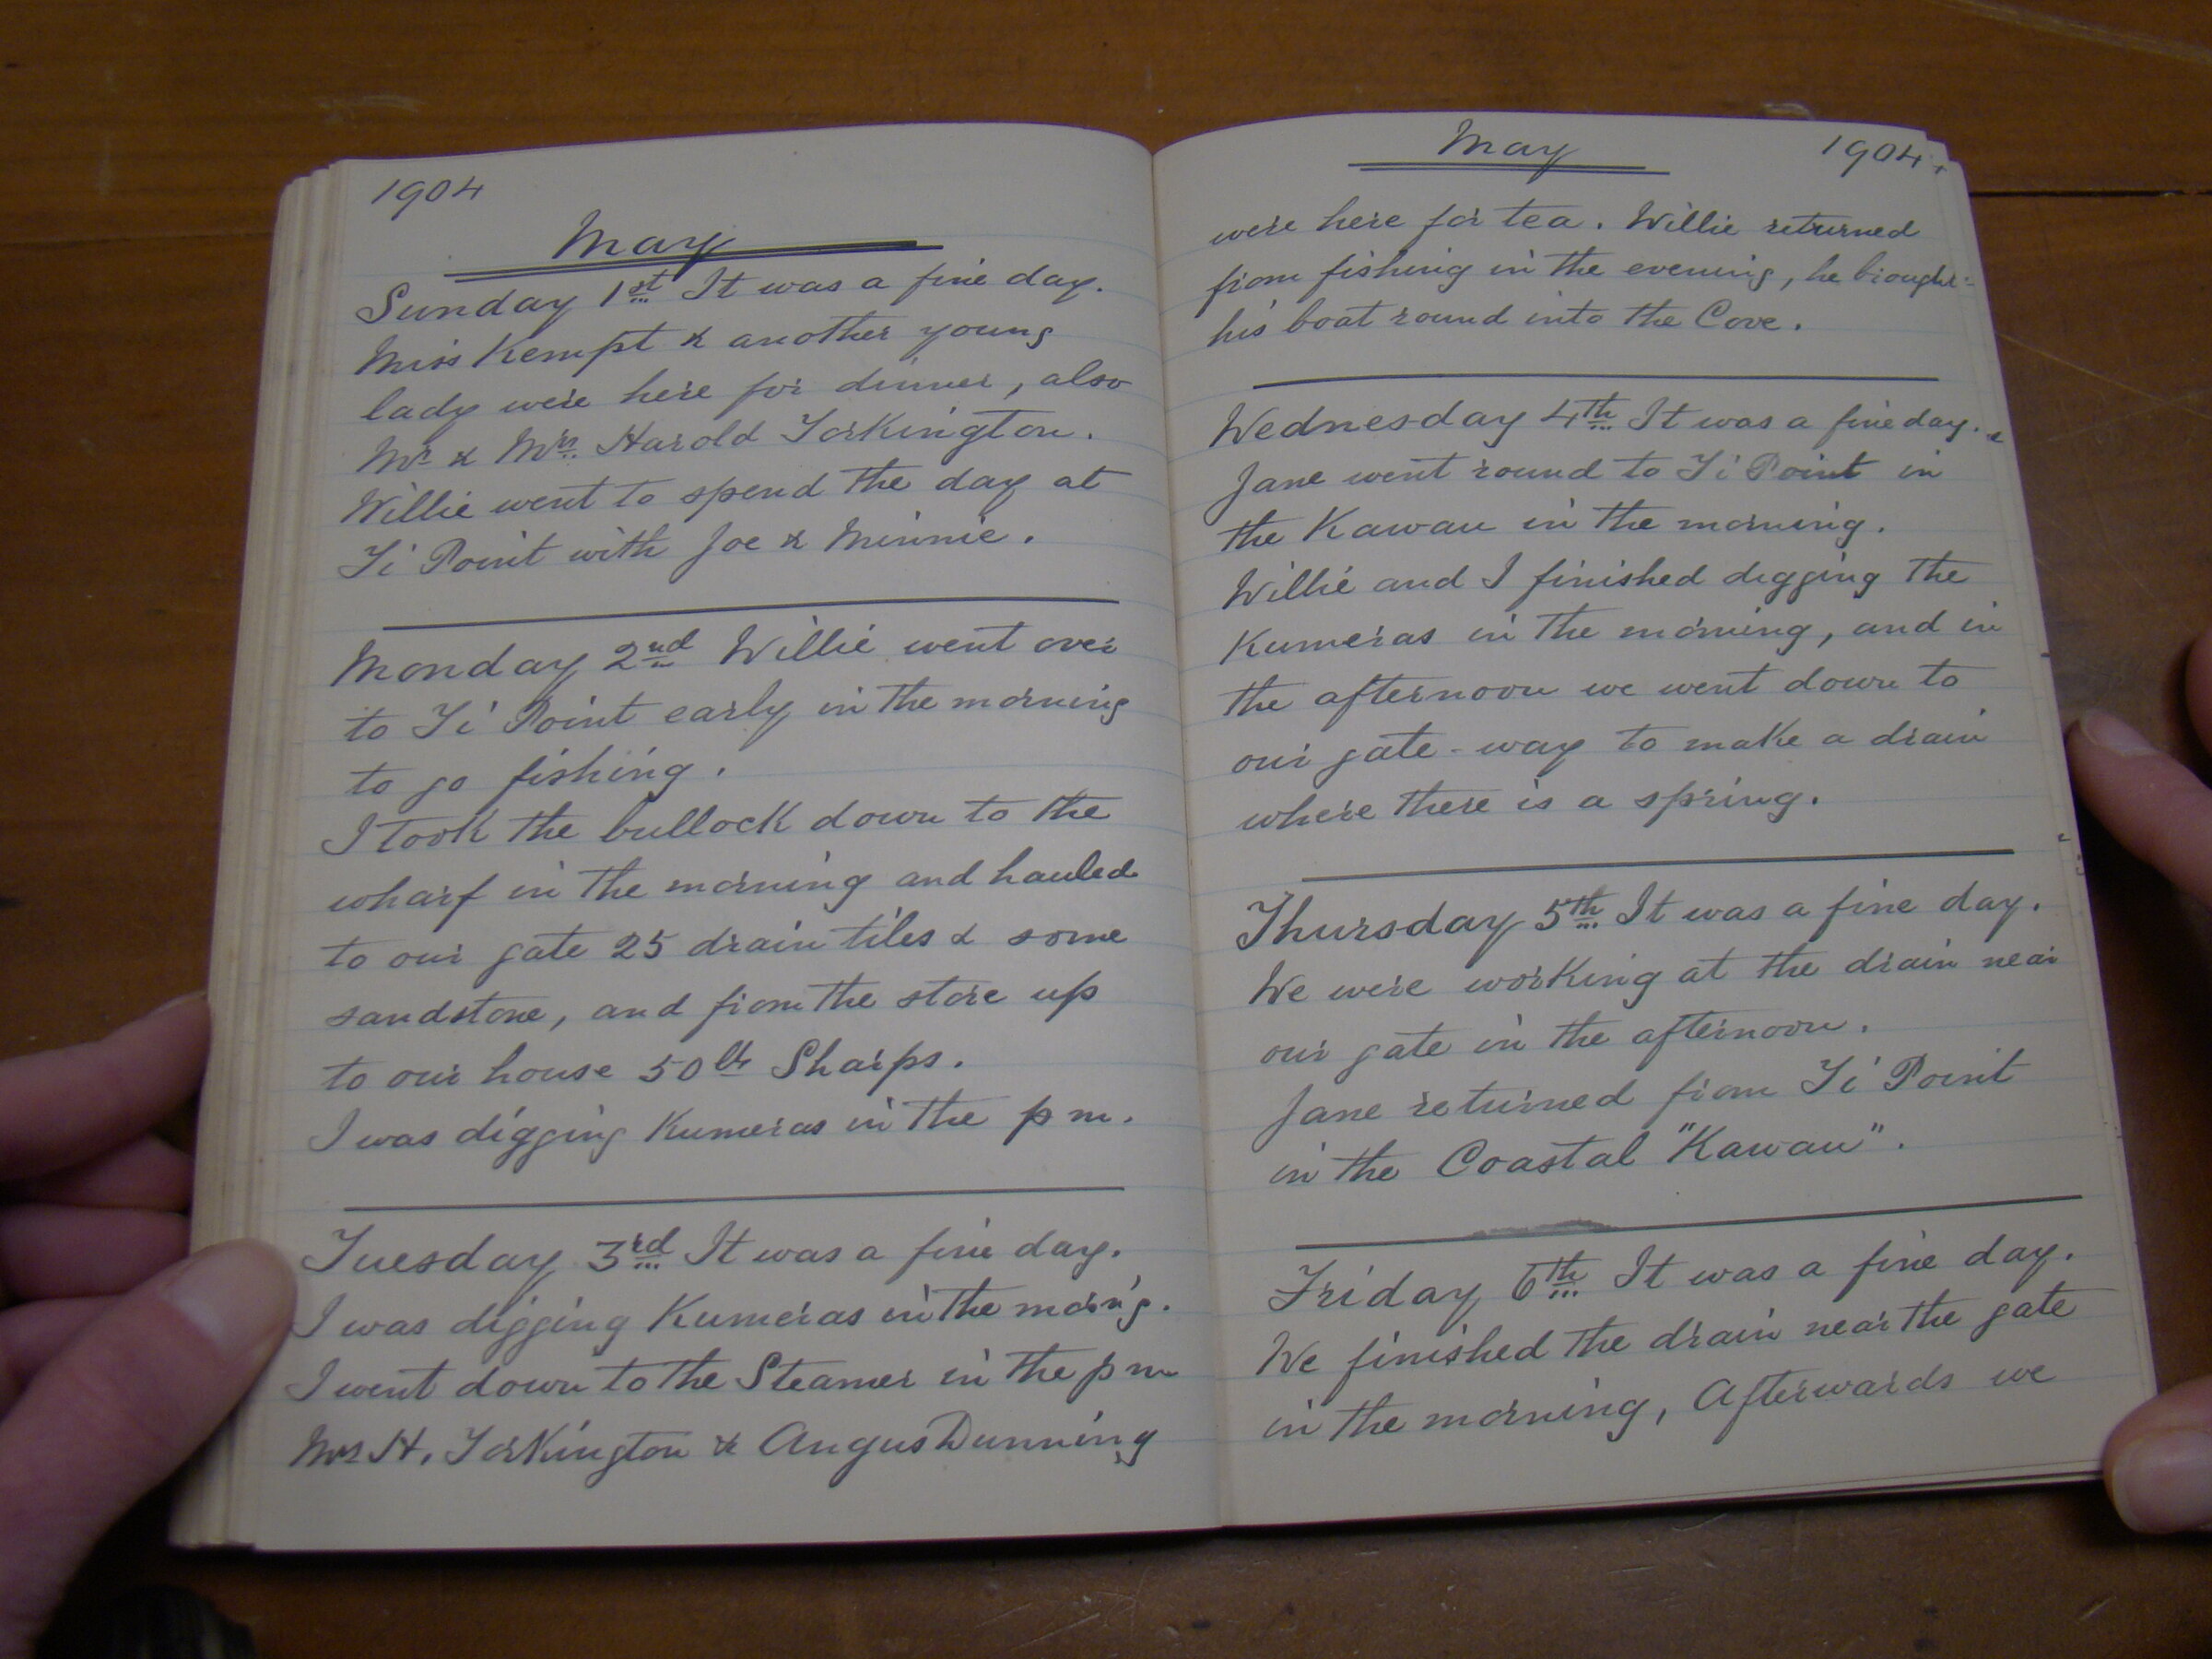 1904
May
Sunday 1st It was a fine day.
Miss Kempt & another young
lady were here for dinner, also
Mr & Mrs. Harold Torkington.
Willie went to spend the day at
Ti Point with Joe & Minnie.
Monday 2nd Willie went over
to Ti Point early in the morning
to go fishing.
I took the bullock down to the
wharf in the morning and hauled
to our gate 25 drain tiles & some
sandstone, and from the store up
to our house 50 lb Sharps.
I was digging Kumeras in the p m.
Tuesday 3rd It was a fine day.
I was digging Kumeras in the morn'g.
I went down to the Steamer in the p m
Mrs H. Torkington & Angus Dunning
May 1904.
were here for tea. Willie returned
from fishing in the evening, he brought
his boat round into the Cove.
Wednesday 4th It was a fine day.
Jane went round to Ti Point in
the Kawau in the morning.
Willie and I finished digging the
Kumeras in the morning, and in
the afternoon we went down to
our gate-way to make a drain
where there is a spring.
Thursday 5th It was a fine day.
We were working at the drain near
our gate in the afternoon.
Jane returned from Ti Point
in the Coastal "Kawau".
Friday 6th It was a fine day.
We finished the drain near the gate
in the morning, Afterwards we